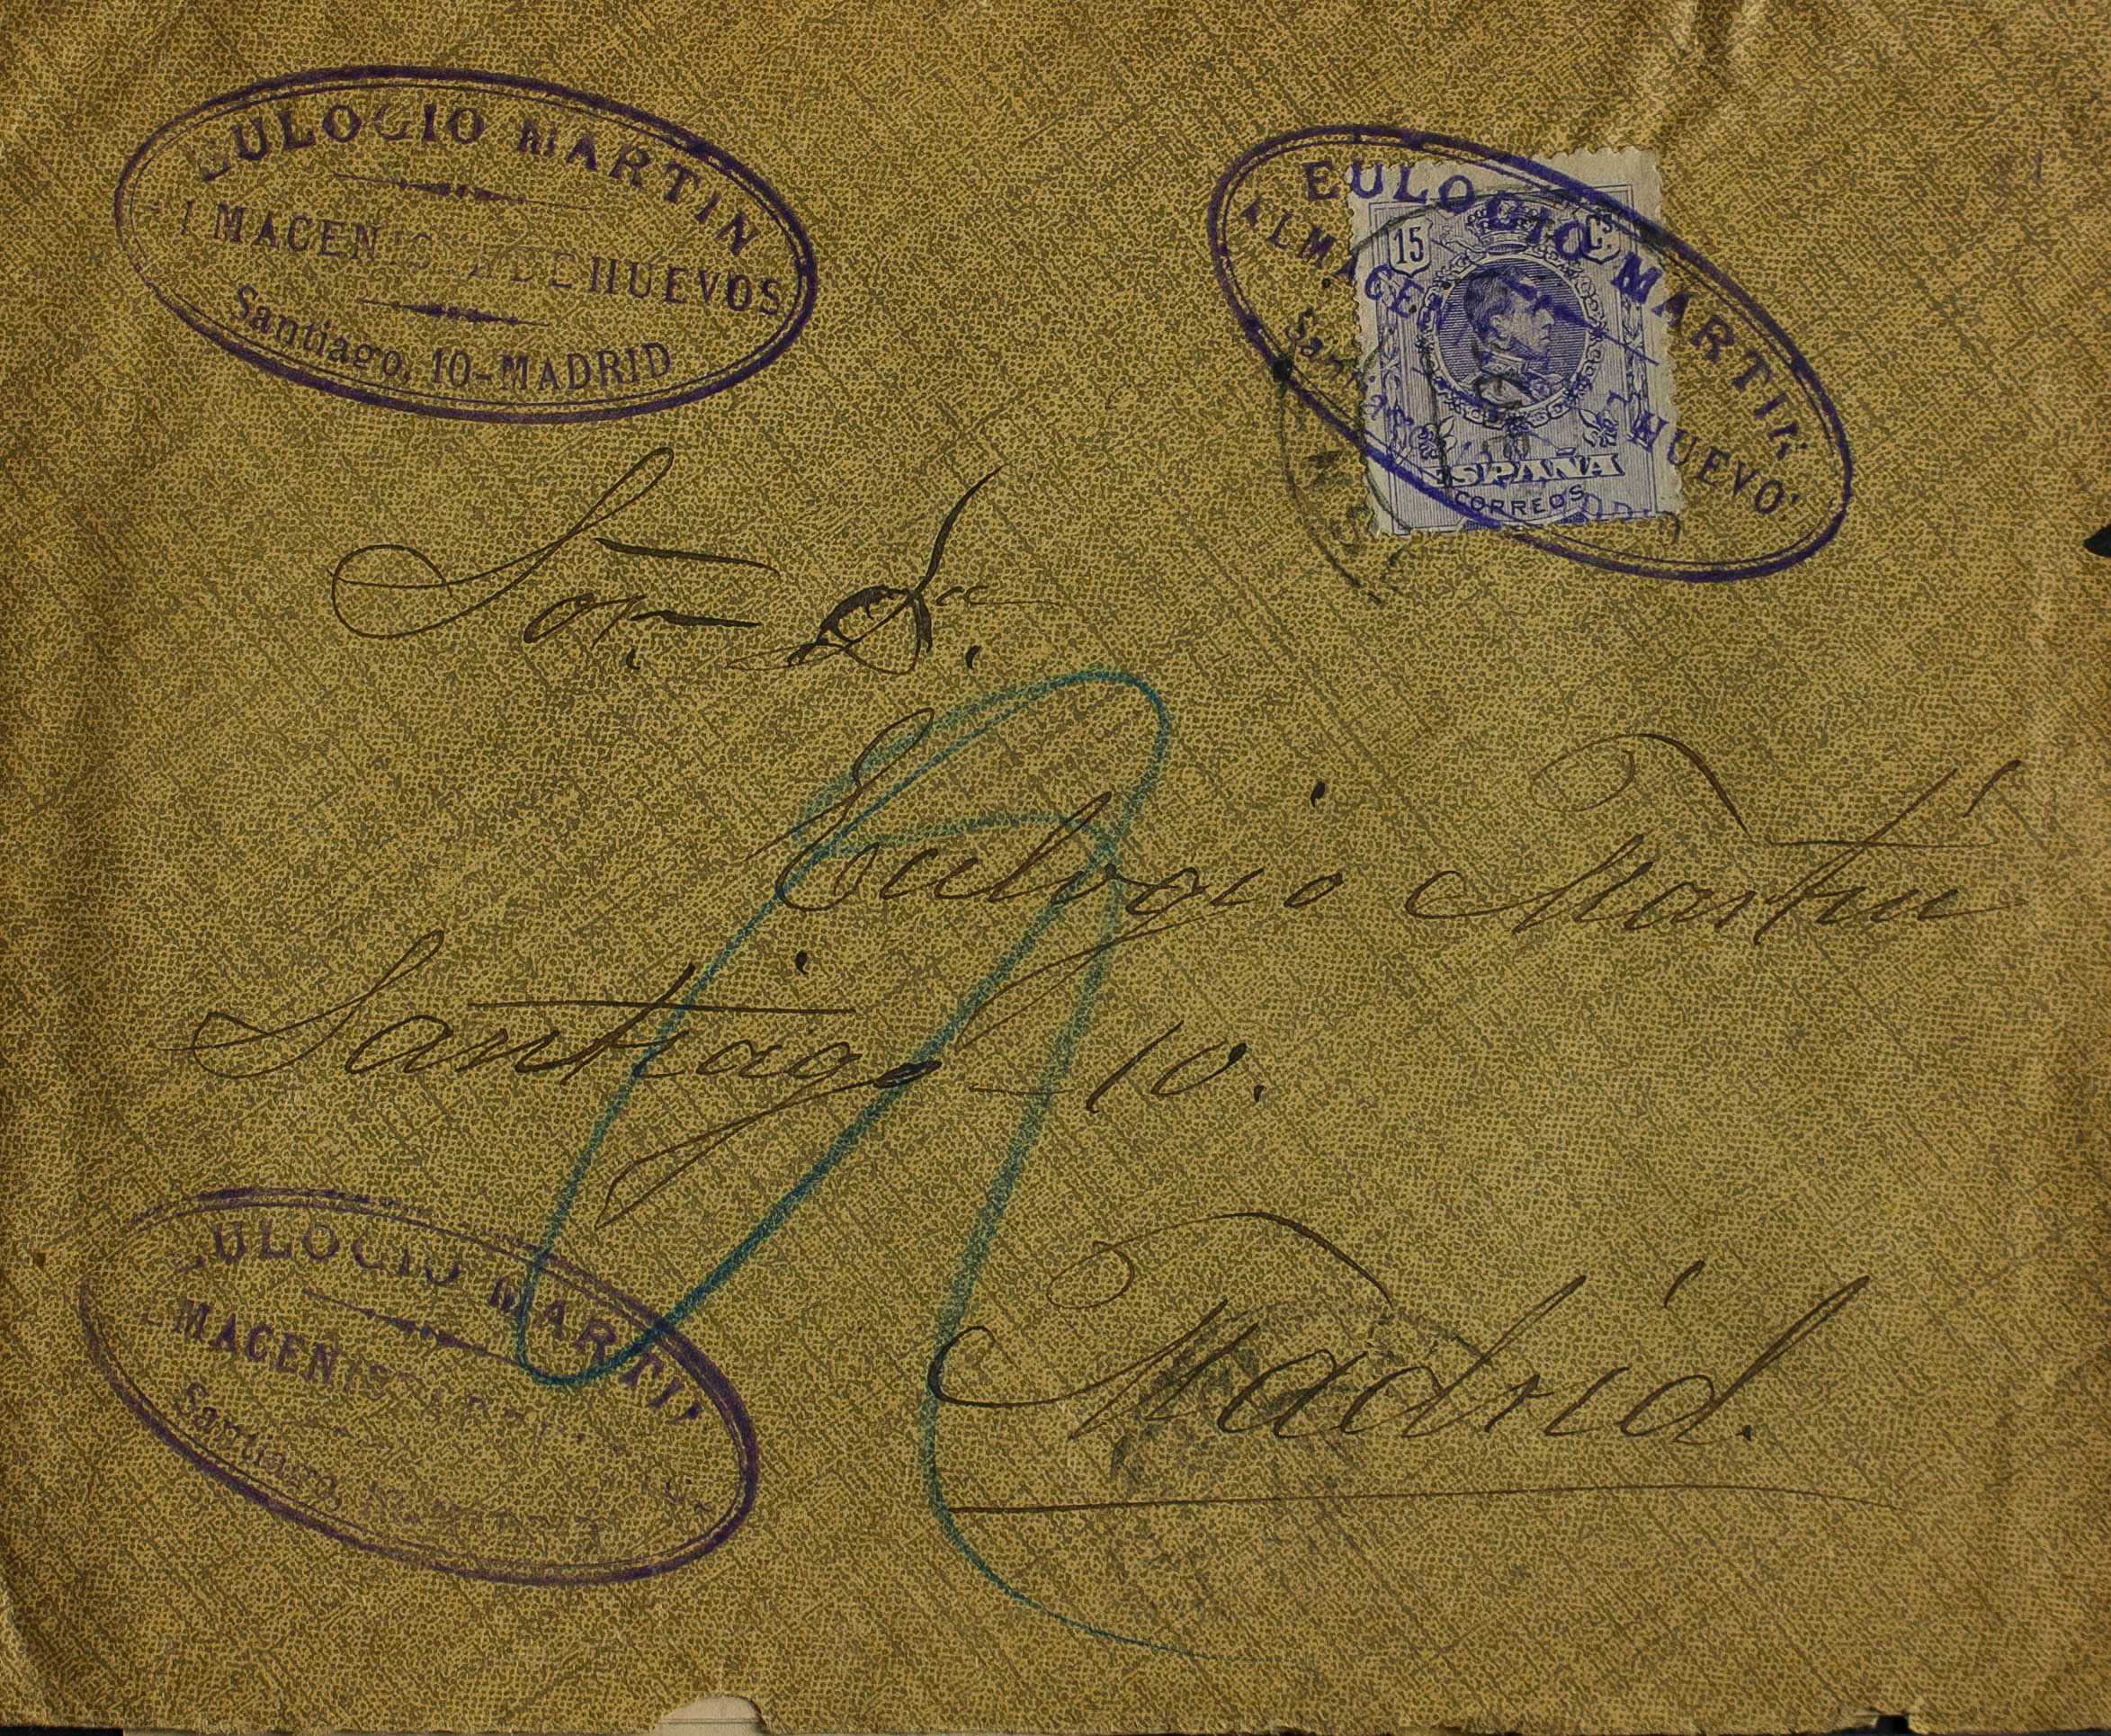 EULOGIO MARTIN
ALMACENISTA DE HUEVOS
Santiago, 10-MADRID
EULOGIO MARTIN
HUEVOS
15 Cs.
ESPAÑA
CORREOS
Sor. Dn.
Eulogio Martin
Santiago - 10.
Madrid.
ULOGIO MARTIN
MACENIS
Santiago,